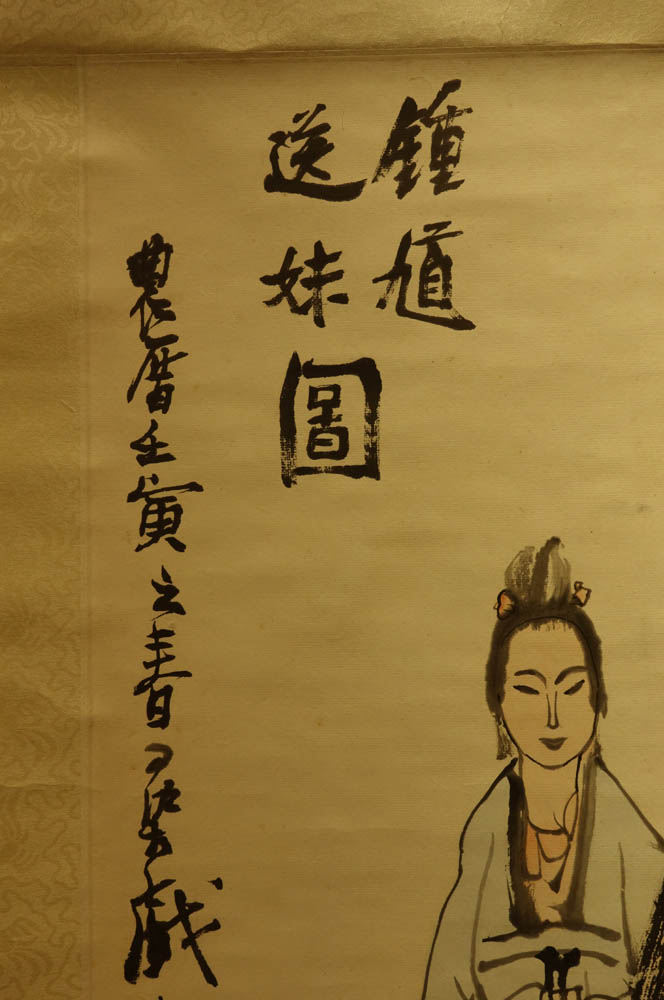 鍾馗
送妹圖
農曆壬寅之春戲